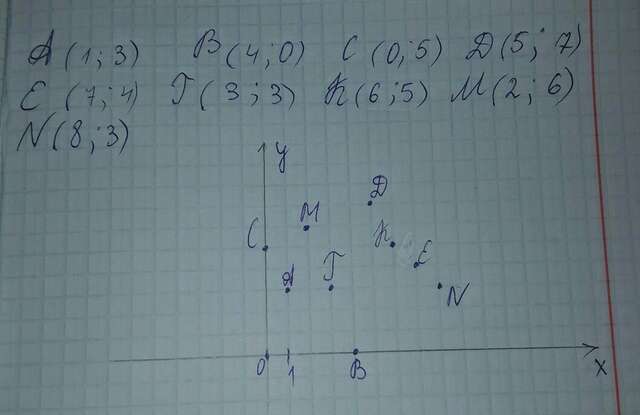 A(1;3) B(4;0) C(0;5) D(5;7)
E(7;4) T(3;3) K(6;5) M(2;6)
N(8;3)
y
D
M
C
K
E
A
T
N
0
1
B
x